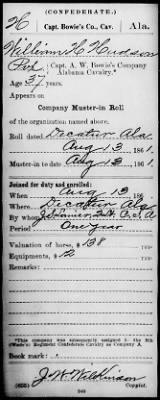 (CONFEDERATE.)
H | Capt. Bowie's Co., Cav. | Ala.
William H Hudson
Pvt Capt. A. W. Bowie's Company
Alabama Cavalry.*
Age 37 years.
Appears on
Company Muster-in Roll
of the organization named above.
Roll dated Decatur Ala
Aug 13, 1861.
Muster-in to date Aug 13, 1861.
Joined for duty and enrolled:
When Aug 13, 186
Where Decatur Ala
By whom C. S. A
Period One year
Valuation of horse, $ 138
Equipments, $ 12
Remarks:
*This company was subsequently assigned to the 8th
(Wade's) Regiment Confederate Cavalry as Company A.
Book mark:
J. W. Wilkinson
(635) Copyist.